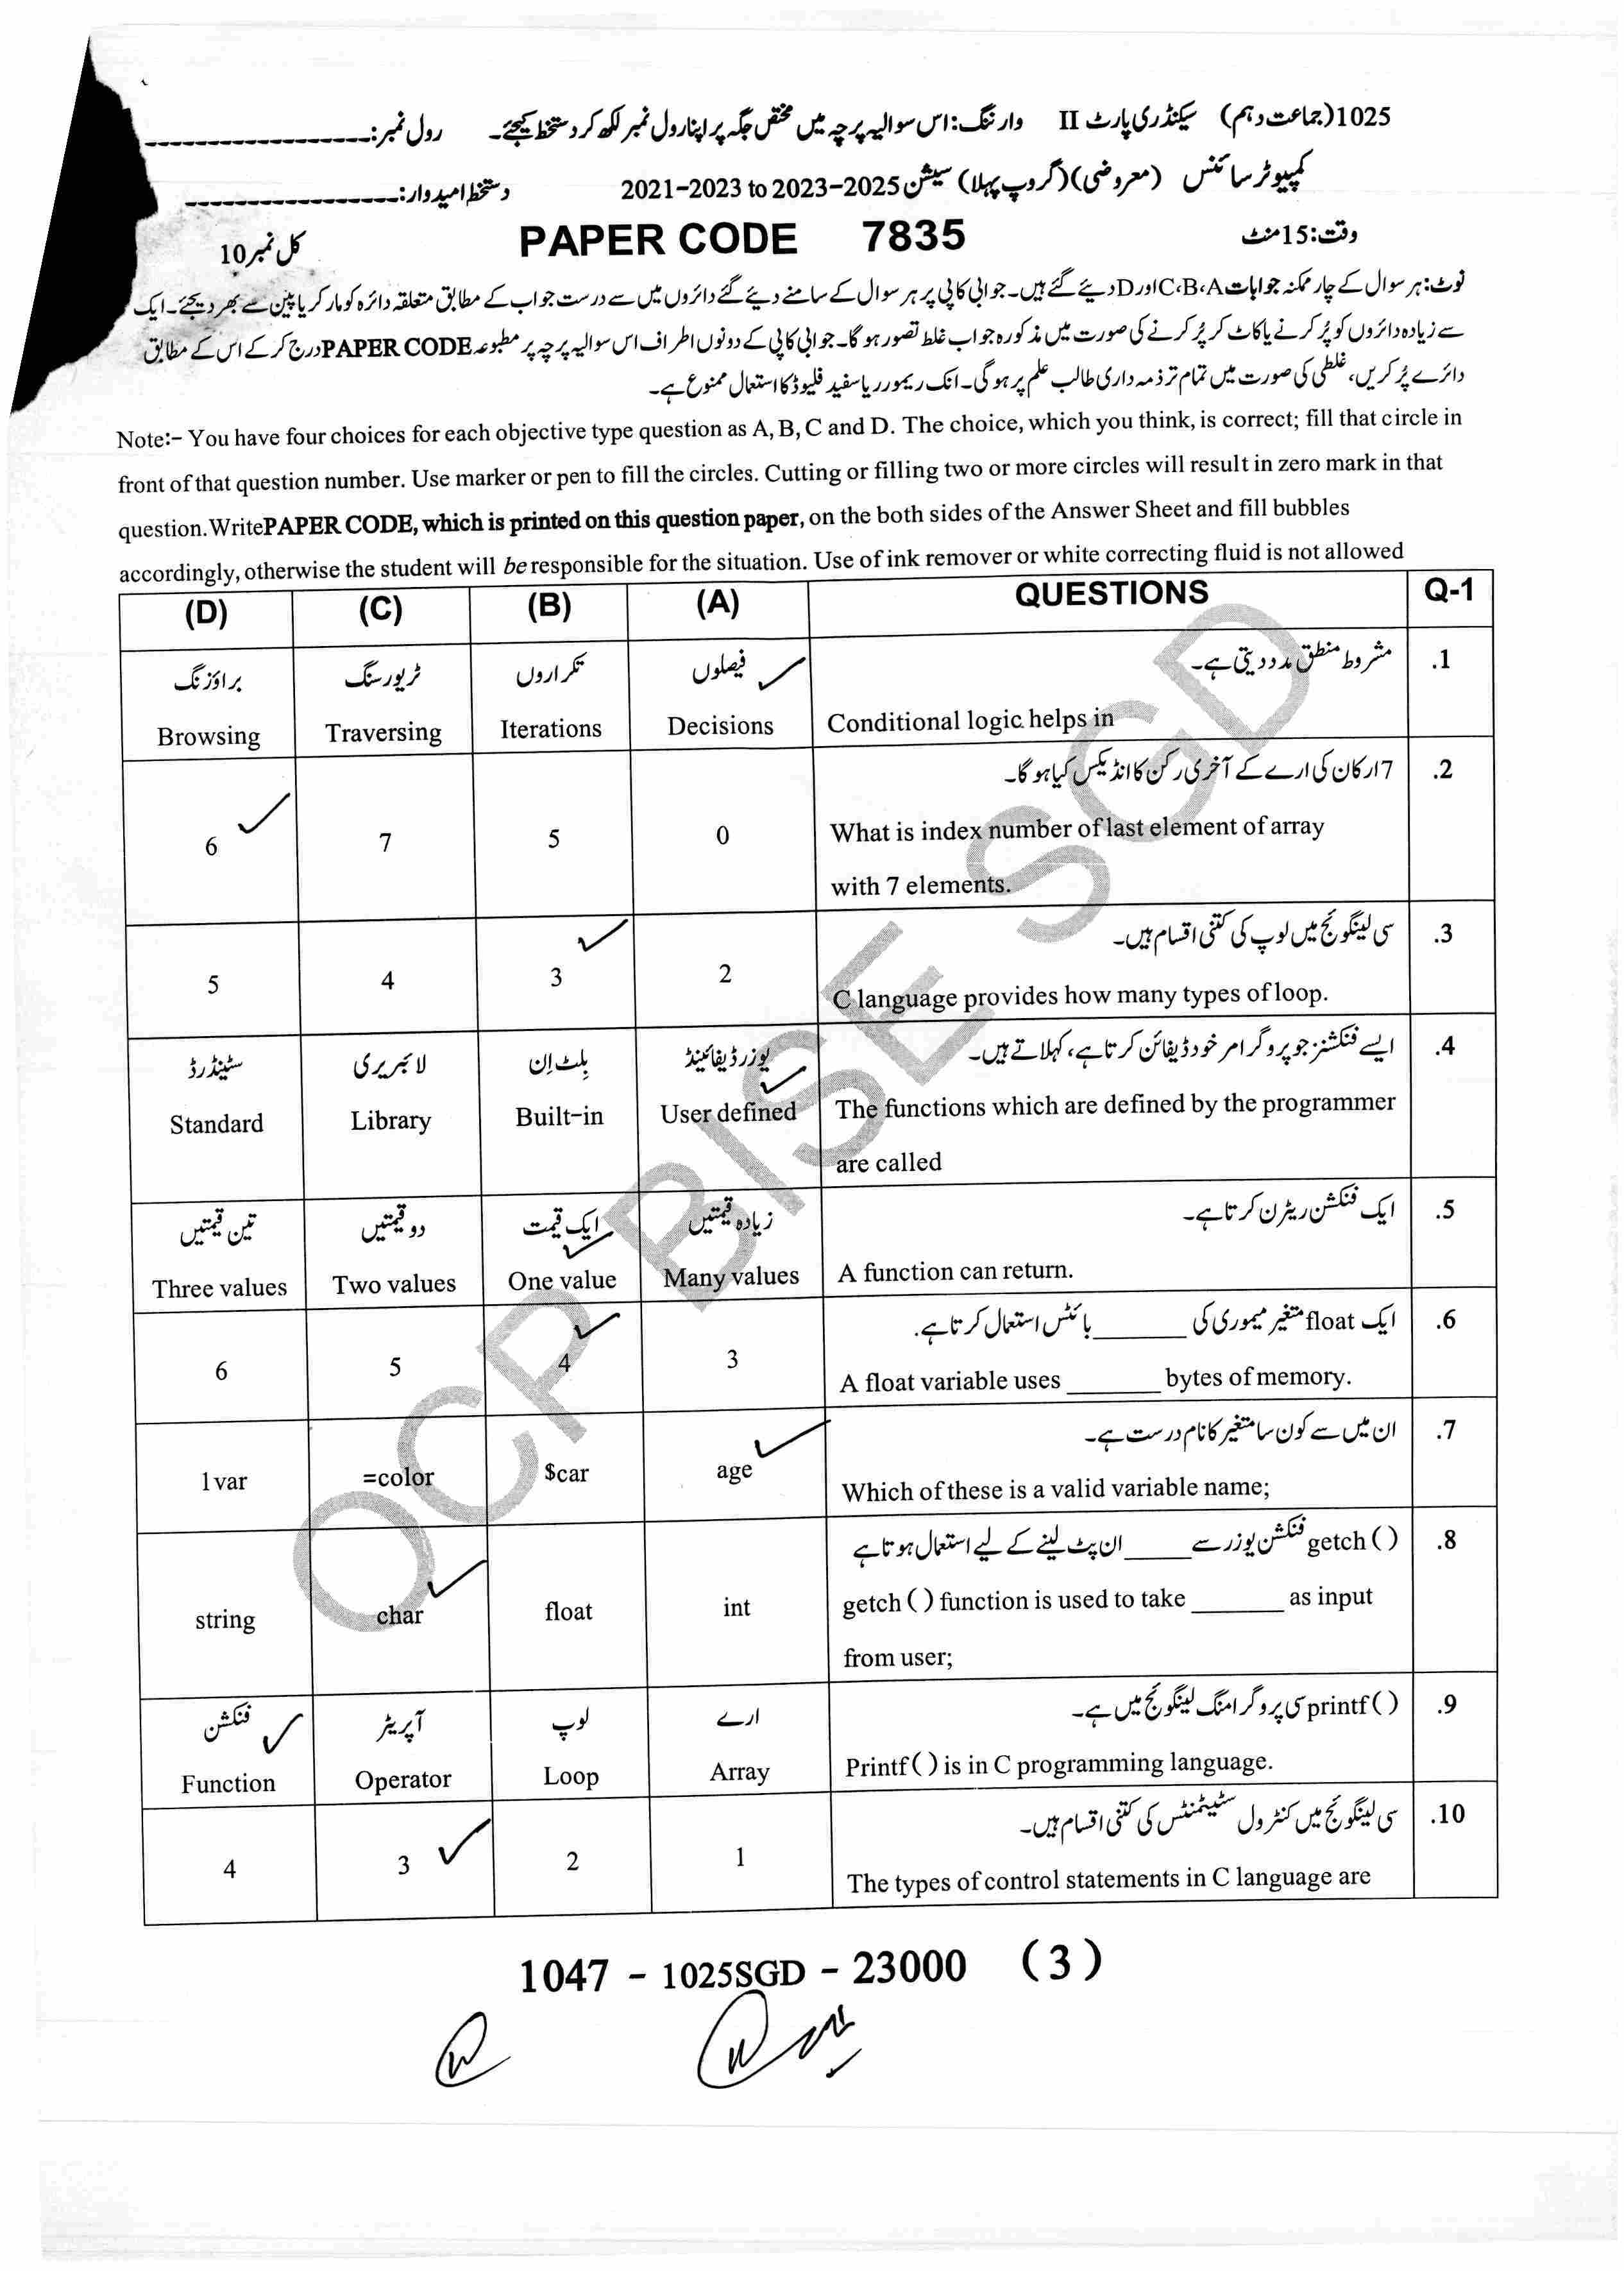 1025(جماعت دہم) سیکنڈری پارٹ II وارننگ: اس سوالیہ پرچہ میں مختص جگہ پر اپنا رول نمبر لکھ کر دستخط کیجئے۔ رول نمبر:
کمپیوٹر سائنس (معروضی) (گروپ پہلا) سیشن 2021-2023 to 2023-2025 دستخط امیدوار:
وقت: 15 منٹ PAPER CODE 7835 کل نمبر 10
نوٹ: ہر سوال کے چار ممکنہ جوابات C،B،A اور D دیئے گئے ہیں۔ جوابی کاپی پر ہر سوال کے سامنے دیئے گئے دائروں میں سے درست جواب کے مطابق متعلقہ دائرہ کو مارکر یا پین سے بھر دیجئے۔ ایک
سے زیادہ دائروں کو پُر کرنے یا کاٹ کر پُر کرنے کی صورت میں مذکورہ جواب غلط تصور ہو گا۔ جوابی کاپی کے دونوں اطراف اس سوالیہ پرچہ پر مطبوعہ PAPER CODE درج کر کے اس کے مطابق
دائرے پُر کریں، غلطی کی صورت میں تمام تر ذمہ داری طالب علم پر ہو گی۔ انک ریمورر یا سفید فلیوڈ کا استعمال ممنوع ہے۔
Note:- You have four choices for each objective type question as A, B, C and D. The choice, which you think, is correct; fill that circle in
front of that question number. Use marker or pen to fill the circles. Cutting or filling two or more circles will result in zero mark in that
question.WritePAPER CODE, which is printed on this question paper, on the both sides of the Answer Sheet and fill bubbles
accordingly, otherwise the student will be responsible for the situation. Use of ink remover or white correcting fluid is not allowed
(D) (C) (B) (A) QUESTIONS Q-1
براؤزنگ ٹریورسنگ تکراروں فیصلوں مشروط منطق مدد دیتی ہے۔ .1
Browsing Traversing Iterations Decisions Conditional logic helps in
7 ارکان کی ارے کے آخری رکن کا انڈیکس کیا ہو گا۔ .2
6 7 5 0 What is index number of last element of array
with 7 elements.
سی لینگوئج میں لوپ کی کتنی اقسام ہیں۔ .3
5 4 3 2 C language provides how many types of loop.
سٹینڈرڈ لائبریری بلٹ اِن یوزر ڈیفائینڈ ایسے فنکشنز جو پروگرامر خود ڈیفائن کرتا ہے، کہلاتے ہیں۔ .4
Standard Library Built-in User defined The functions which are defined by the programmer
are called
تین قیمتیں دو قیمتیں ایک قیمت زیادہ قیمتیں ایک فنکشن ریٹرن کرتا ہے۔ .5
Three values Two values One value Many values A function can return.
ایک float متغیر میموری کی ______ بائٹس استعمال کرتا ہے. .6
6 5 4 3 A float variable uses ______ bytes of memory.
ان میں سے کون سا متغیر کا نام درست ہے۔ .7
1var =color $car age Which of these is a valid variable name;
getch ( ) فنکشن یوزر سے ______ ان پٹ لینے کے لیے استعمال ہوتا ہے .8
string char float int getch ( ) function is used to take ______ as input
from user;
فنکشن آپریٹر لوپ ارے printf ( ) سی پروگرامنگ لینگوئج میں ہے۔ .9
Function Operator Loop Array Printf ( ) is in C programming language.
سی لینگوئج میں کنٹرول سٹیٹمنٹس کی کتنی اقسام ہیں۔ .10
4 3 2 1 The types of control statements in C language are
OCP BISE SGD
1047 - 1025SGD - 23000 (3)